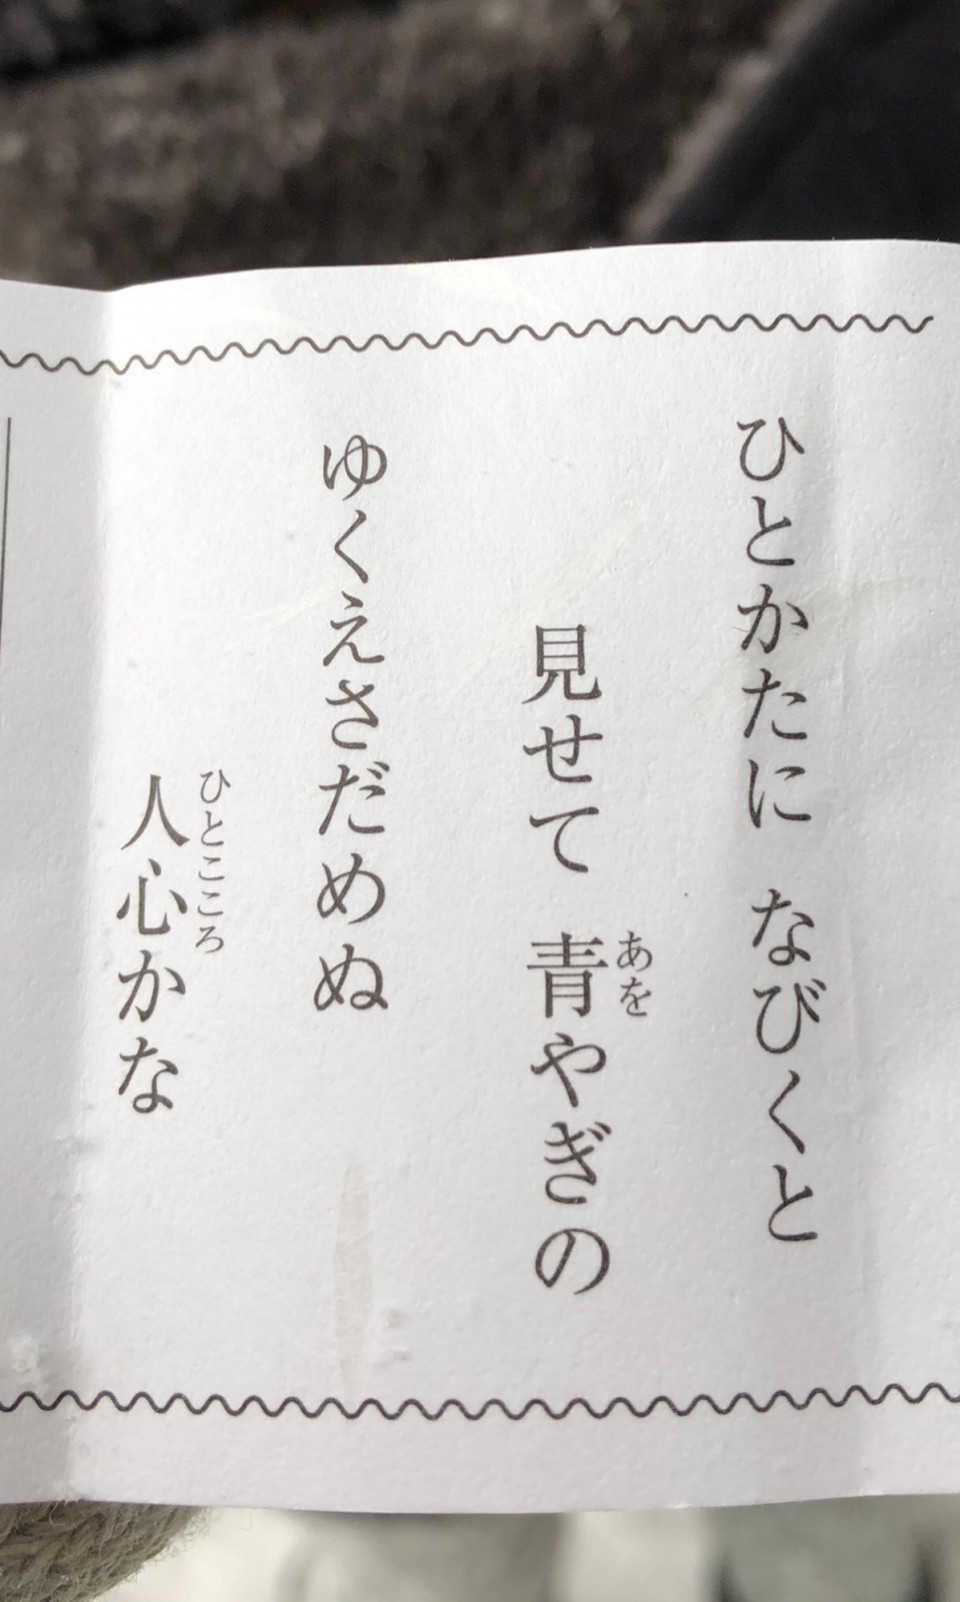 ひとかたに なびくと
見せて 青やぎの
あを
ゆくえさだめぬ
人心かな
ひところ